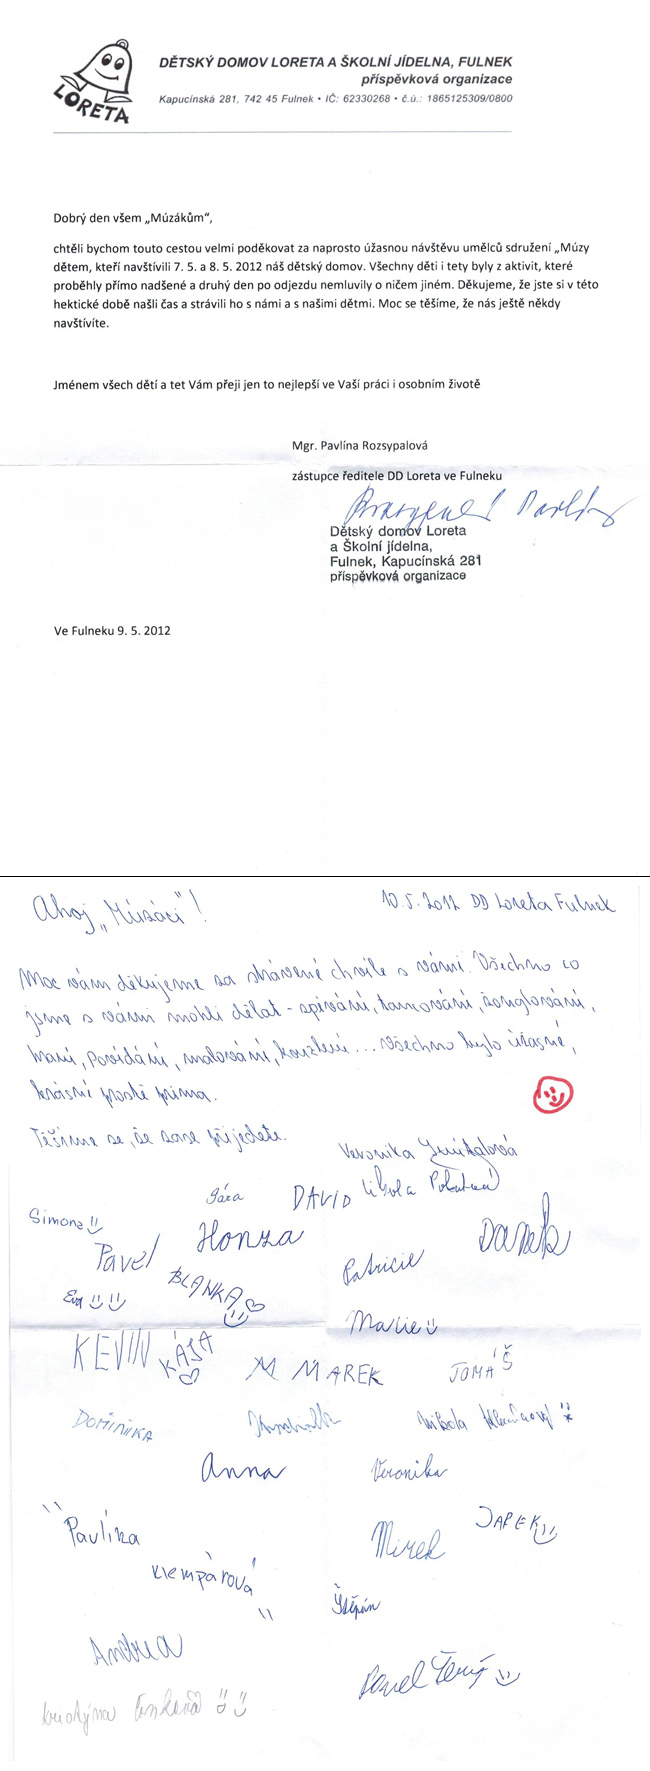 LORETA
DĚTSKÝ DOMOV LORETA A ŠKOLNÍ JÍDELNA, FULNEK
příspěvková organizace
Kapucínská 281, 742 45 Fulnek • IČ: 62330268 • č.ú.: 1865125309/0800
Dobrý den všem „Múzákům“,
chtěli bychom touto cestou velmi poděkovat za naprosto úžasnou návštěvu umělců sdružení „Múzy
dětem, kteří navštívili 7. 5. a 8. 5. 2012 náš dětský domov. Všechny děti i tety byly z aktivit, které
proběhly přímo nadšené a druhý den po odjezdu nemluvily o ničem jiném. Děkujeme, že jste si v této
hektické době našli čas a strávili ho s námi a s našimi dětmi. Moc se těšíme, že nás ještě někdy
navštívíte.
Jménem všech dětí a tet Vám přeji jen to nejlepší ve Vaší práci i osobním životě
Mgr. Pavlína Rozsypalová
zástupce ředitele DD Loreta ve Fulneku
Dětský domov Loreta
a Školní jídelna,
Fulnek, Kapucínská 281
příspěvková organizace
Ve Fulneku 9. 5. 2012
Ahoj „Múzáci“!
10.5.2012 DD Loreta Fulnek
Moc vám děkujeme za strávené chvíle s vámi. Všechno co
jsme s vámi mohli dělat - zpívání, tancování, žonglování,
hraní, povídání, malování, kouzlení... Všechno bylo úžasné,
krásné prostě prima.
Těšíme se, že zase přijedete.
Veronika
Sára DAVID Nikola
Simona
Pavel Honza Darek
BLANKA Patricie
Eva
Marie
KEVIN KÁJA M MAREK TOMÁŠ
DOMINIKA Nikola
Anna Veronika
JAREK
Pavlína
Mirek
Klempárová
Štěpán
Andrea
Pavel Černý
Kristýna